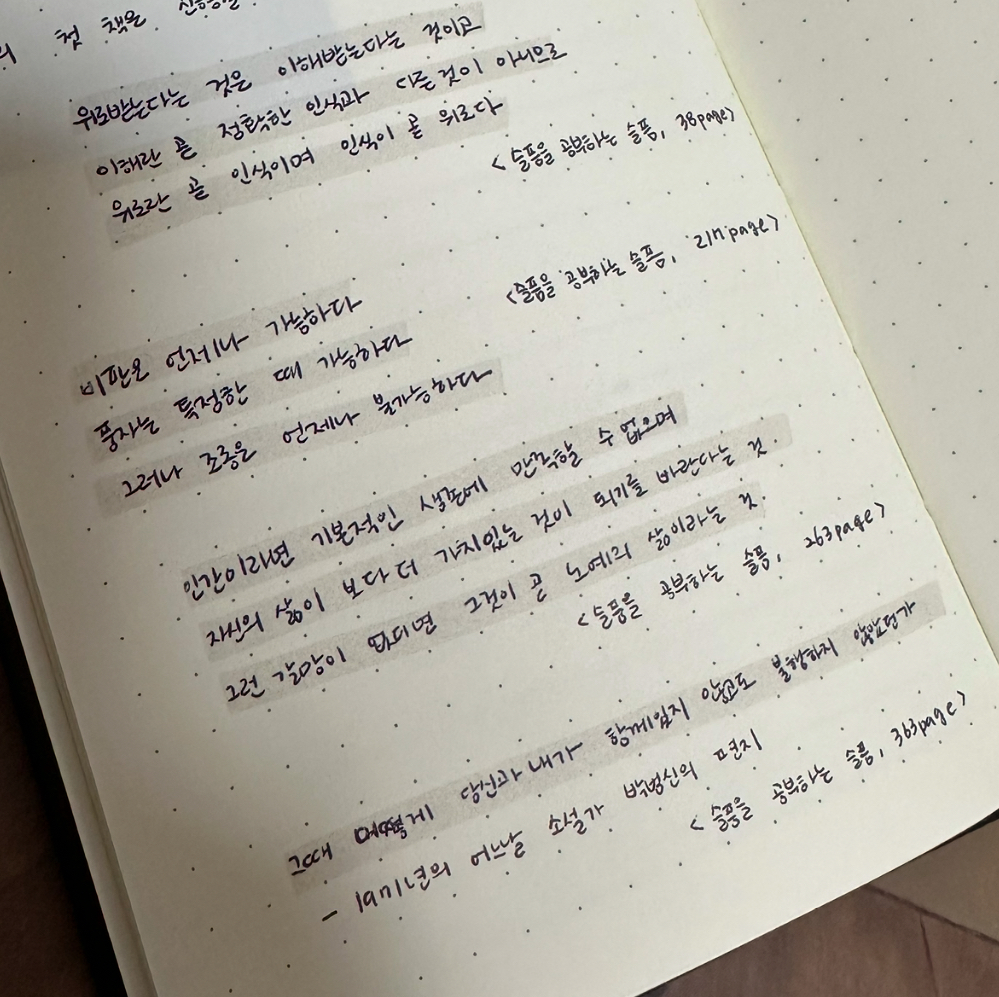 첫 책은
위로받는다는 것은 이해받는다는 것이고
이해란 곧 정확한 인식과 다른것이 아니므로
위로란 곧 인식이며 인식이 곧 위로다
<슬픔을 공부하는 슬픔, 38page>
<슬픔을 공부하는 슬픔, 217page>
비판은 언제나 가능하다
풍자는 특정한 때 가능하다
그러나 조롱은 언제나 불가능하다
인간이라면 기본적인 생존에 만족할 수 없으며
자신의 삶이 보다 더 가치있는 것이 되기를 바란다는 것.
그런 갈망이 없다면 그것이 곧 노예의 삶이라는 것.
<슬픔을 공부하는 슬픔, 263page>
그때 어떻게 당신과 내가 함께있지 않고도 불행하지 않았던가
- 1971년의 어느날 소설가 박범신의 편지
<슬픔을 공부하는 슬픔, 363page>